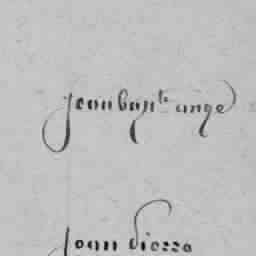 jean bapte ange
jean pierre